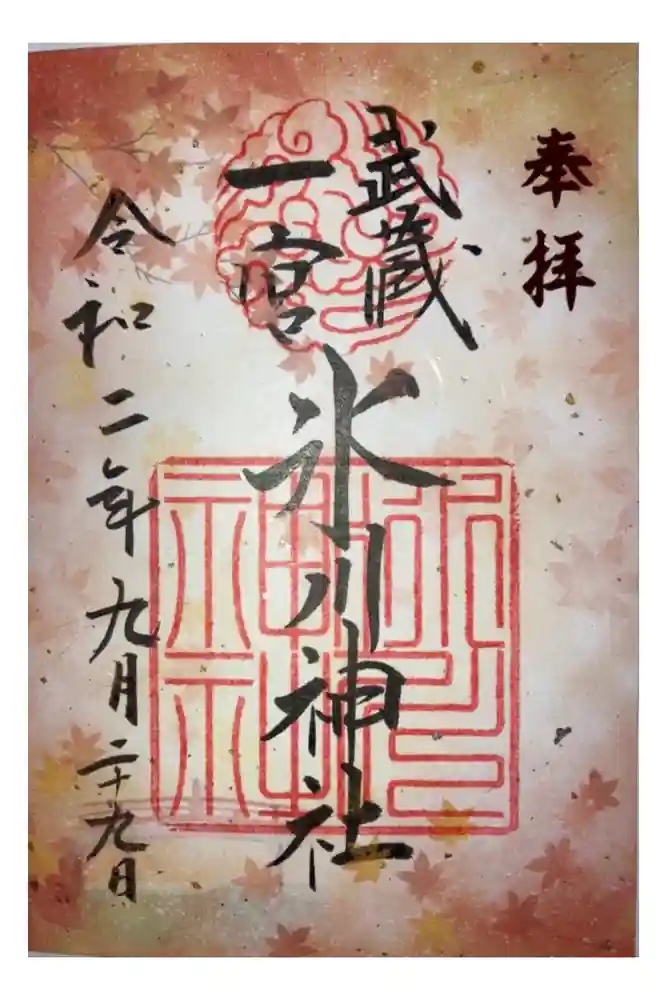 奉拝
武蔵
一宮
氷川神社
令和二年九月二十九日